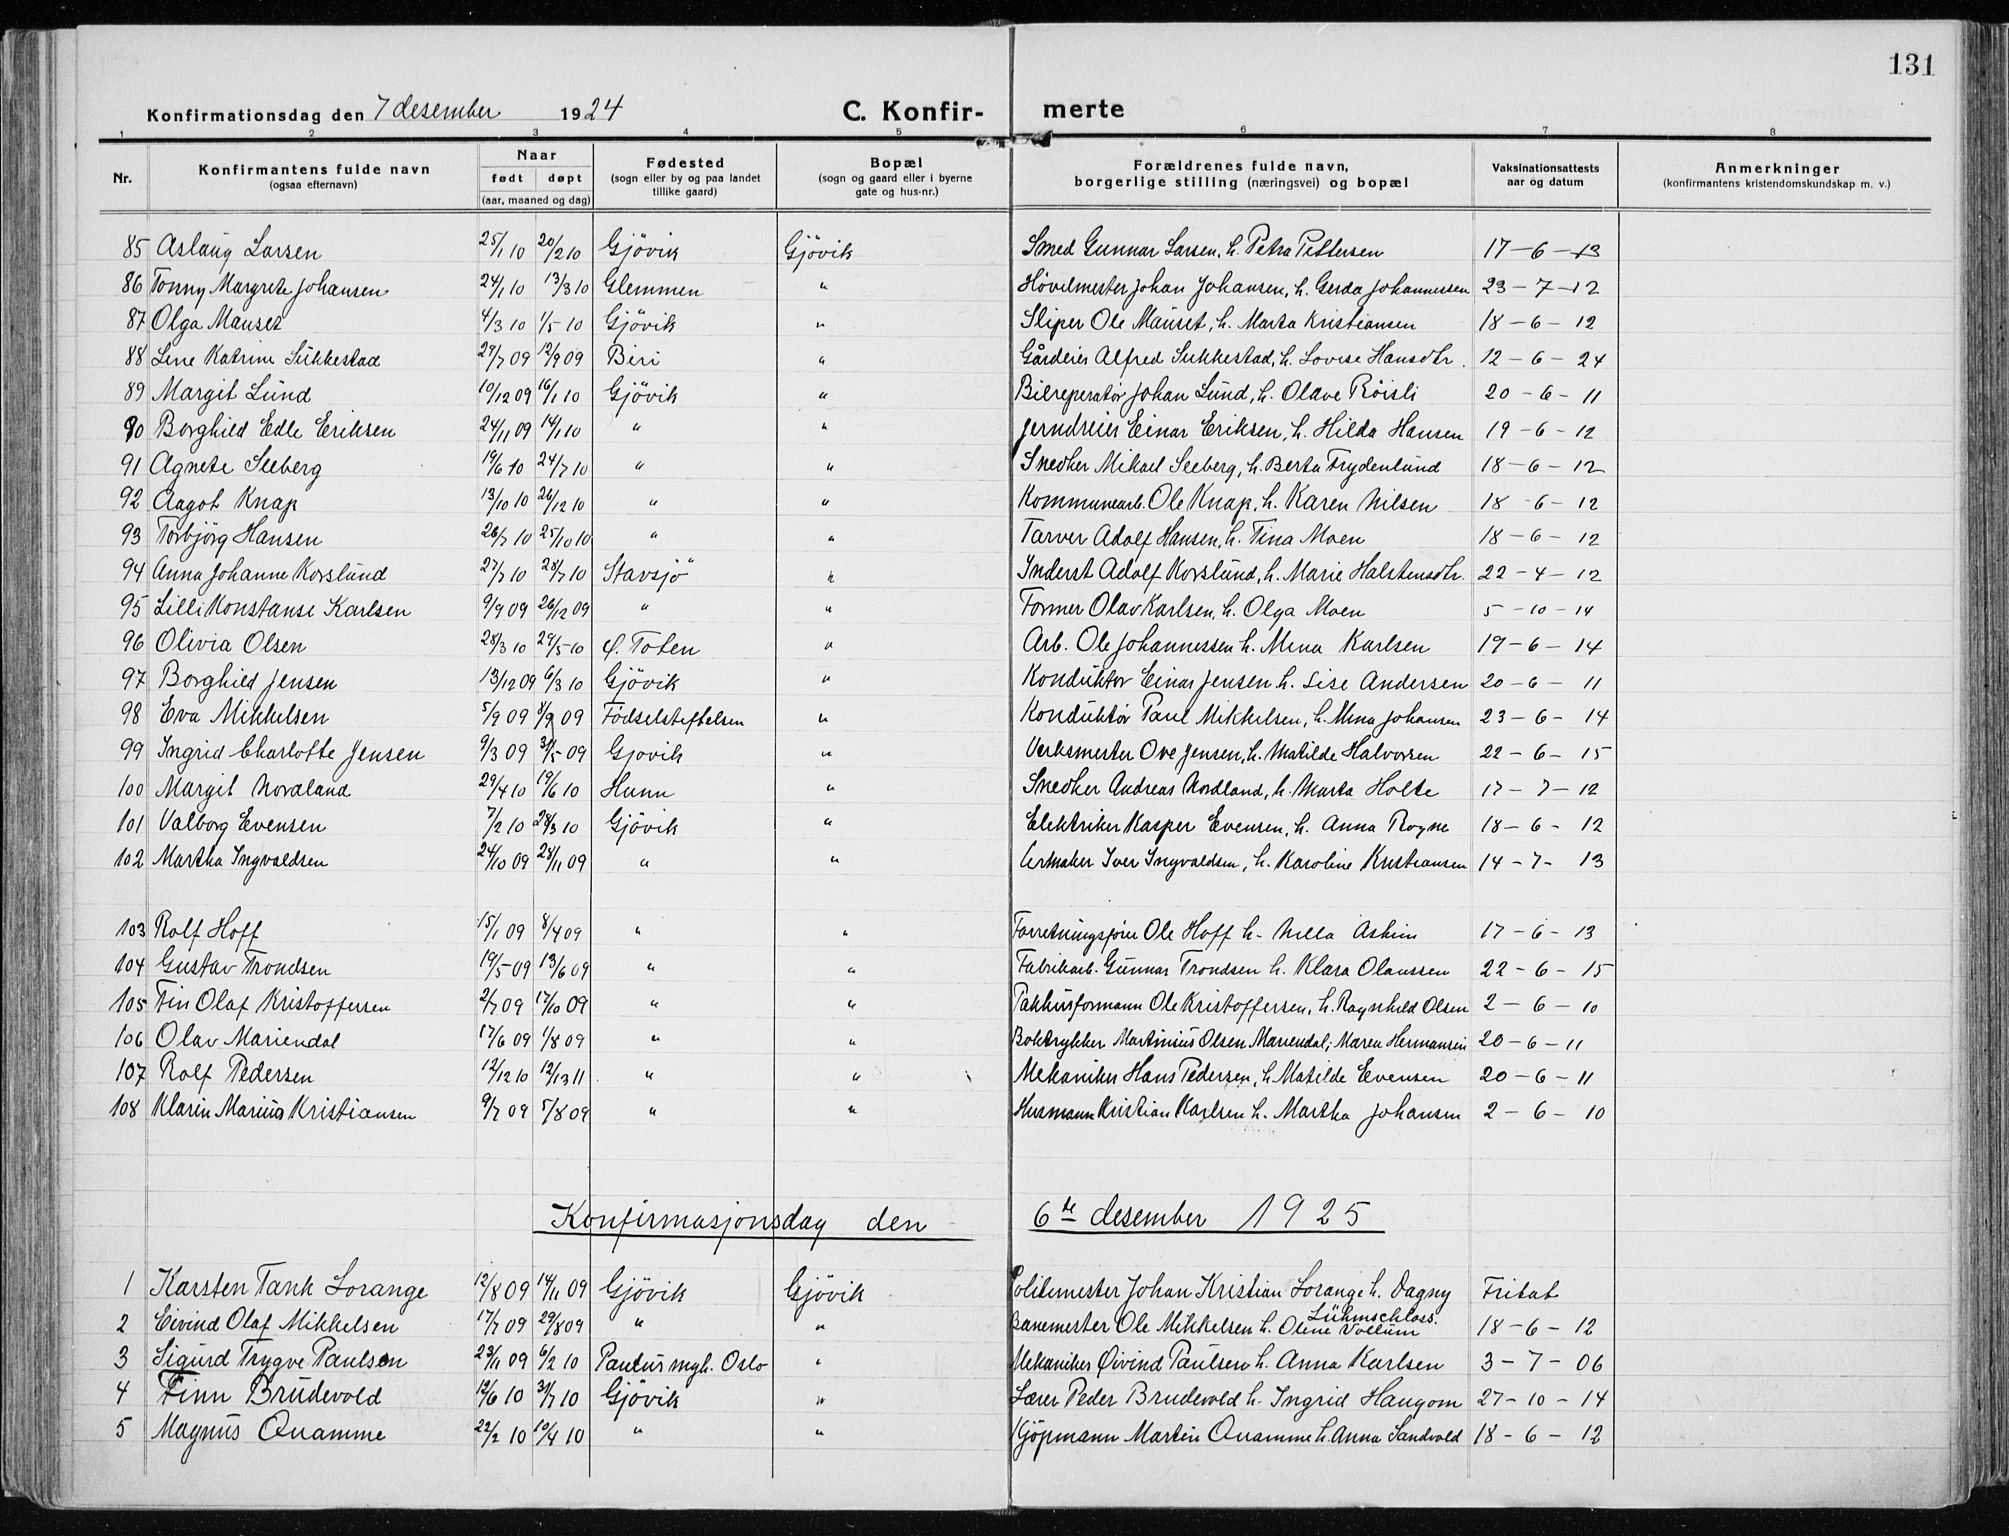 131
Konfirmationsdag den 7 desember 1924 C. Konfir- merte
1 2 3 4 5 6 7 8
Nr. Konfirmantens fulde navn (ogsaa efternavn) Naar født døpt (aar, maaned og dag) Fødested (sogn eller by og paa landet tillike gaard) Bopæl (sogn og gaard eller i byerne gate og hus-nr.) Forældrenes fulde navn, borgerlige stilling (næringsvei) og bopæl Vaksinationsattests aar og datum Anmerkninger (konfirmantens kristendomskundskap m. v.)
85 Aslaug Larsen 25/1 10 20/2 10 Gjövik Gjövik Smed Gunnar Larsen, h. Petra Pettersen 17-6-13
86 Tonny Margrete Johansen 24/1 10 13/3 10 Glemmen " Hövelmester Johan Johansen, h. Gerda Johannessen 23-7-12
87 Olga Mauset 4/3 10 1/5-10 Gjövik " Sliper Ole Mauset, h. Marta Kristiansen 18-6-12
88 Line Katrine Sukkestad 29/7 09 12/9 09 Biri " Gårdeier Alfred Sukkestad, h. Lovise Hansdtr. 12-6-24
89 Margit Lund 10/12 09 16/1 10 Gjövik " Bilreperatör Johan Lund, h. Olave Röisli 20-6-11
90 Borghild Edle Eriksen 24/11 09 14/1 10 " " Jerndreier Einar Eriksen, h. Hilda Hansen 19-6-12
91 Agnete Seeberg 19/6 10 24/7 10 " " Snedker Mikael Seeberg, h. Berta Frydenlund 18-6-12
92 Aagot Knap 13/10 10 26/12 10 " " Kommunearb. Ole Knap, h. Karen Nilsen 18-6-12
93 Torbjörg Hansen 26/7 10 25/10 10 " " Tarver Adolf Hansen, h. Tina Moen 18-6-12
94 Anna Johanne Korslund 27/7 10 28/7 10 Stavsjö " Inderst Adolf Korslund, h. Marie Halstensdtr. 22-4-12
95 Lilli Konstanse Karlsen 9/9 09 26/12 09 " " Former Olav Karlsen, h. Olga Moen 5-10-14
96 Olivia Olsen 28/3 10 29/5-10 Ø. Toten " Arb. Ole Johannessen h. Mina Karlsen 19-6-14
97 Borghild Jensen 13/12 09 6/3 10 Gjövik " Konduktor Einar Jensen h. Lise Andersen 20-6-11
98 Eva Mikkelsen 5/9 09 8/9 09 Födselstiftelsen " Konduktör Paul Mikkelsen, h. Mina Johansen 23-6-14
99 Ingrid Charlotte Jensen 9/3 09 31/5-09 Gjövik " Verksmester Ove Jensen, h. Matilde Halvorsen 22-6-15
100 Margit Nordland 29/4 10 19/6 10 Hunn " Snedker Andreas Nordland, h. Marta Holte 17-7-12
101 Valborg Evensen 7/2 10 28/3 10 Gjövik " Elektriker Kasper Evensen, h. Anna Rogne 18-6-12
102 Martha Ingvaldsen 24/10 09 28/11 09 " " Urmaker Iver Ingvaldsen, h. Karoline Kristiansen 14-7-13
103 Rolf Hoff 15/1 09 8/4 09 " " Forretningsfører Ole Hoff h. Nilla Askim 17-6-13
104 Gustav Trondsen 19/5-09 13/6 09 " " Fabrikarb. Gunnar Trondsen h. Klara Olaussen 22-6-15
105 Fin Olaf Kristoffersen 2/7 09 17/10 09 " " Pakhusformann Ole Kristoffersen, h. Ragnhild Olsen 2-6-10
106 Olav Mariendal 17/6 09 1/8 09 " " Boktrykker Martinius Olsen Mariendal, Maren Hermansen 20-6-11
107 Rolf Pedersen 12/12 10 12/13 11 " " Mekaniker Hans Pedersen, h Matilde Evensen 20-6-11
108 Klarin Marius Kristiansen 9/7 09 5/8 09 " " Husmann Kristian Karlsen h. Martha Johansen 2-6-10
Konfirmasjonsdag den 6te desember 1925
1 Karsten Tank Lorange 12/8 09 14/11 09 Gjövik Gjövik Politimester Johan Kristian Lorange h. Dagny Lühmschloss. Fritat
2 Eivind Olaf Mikkelsen 17/7 09 29/8 09 " " Banemester Ole Mikkelsen h. Oline Vollum 18-6-12
3 Sigurd Trygve Paulsen 23/11 09 6/2 10 Paulus mgh. Oslo " Mekaniker Øivind Paulsen h. Anna Karlsen 3-7-06
4 Finn Brudevold 12/6 10 31/7 10 Gjövik " Lærer Peder Brudevold h. Ingrid Haugom 27-10-14
5 Magnus Quamme 22/2 10 10/4 10 " " Kjöpmann Martin Quamme h. Anna Sandvold 18-6-12